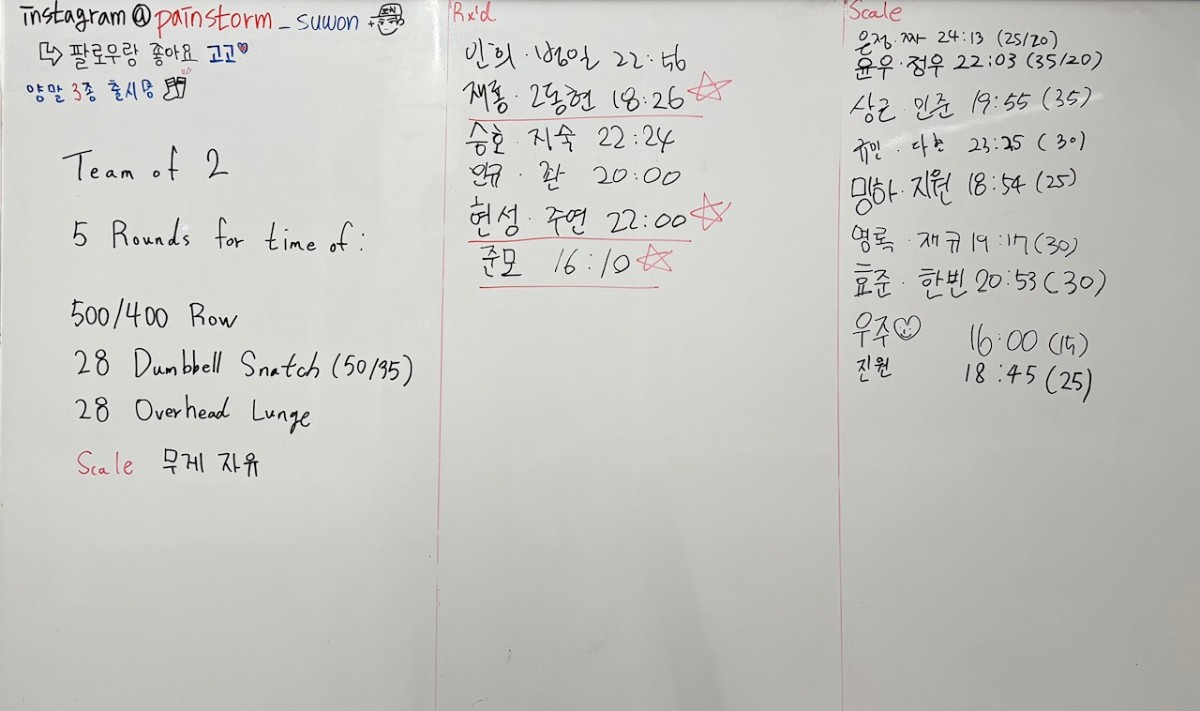 instagram @painstorm_suwon
팔로우랑 좋아요 고고
양말 3종 출시중
Team of 2
5 Rounds for time of:
500/400 Row
28 Dumbbell Snatch (50/35)
28 Overhead Lunge
Scale 무게 자유
Rx'd
인희·범일 22:56
재롱·2동현 18:26
승호·지숙 22:24
인규·촨 20:00
현성·주연 22:00
준모 16:10
Scale
은정·짜 24:13 (25/20)
윤우·정우 22:03 (35/20)
상근·민준 19:55 (35)
규민·다현 23:25 (30)
밍하·지원 18:54 (25)
영록·재규 19:17 (30)
효준·한빈 20:53 (30)
우주 16:00 (15)
진원 18:45 (25)